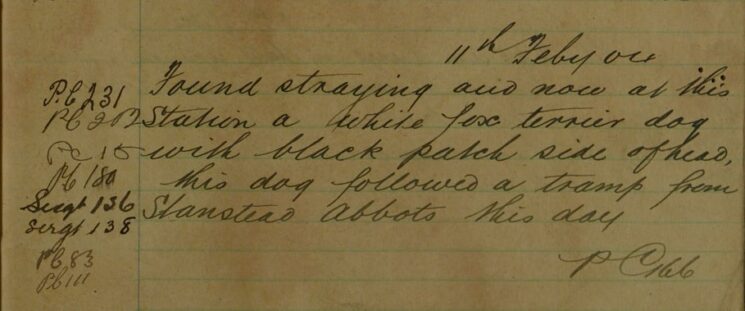 11th Feby 04
P.C 231 Found straying and now at this
PC 202 Station a white fox terrier dog
PC 15 with black patch side of head,
PC 180 this dog followed a tramp from
Sergt 136 Stanstead Abbots this day
Sergt 138
PC 83 PC 166
PC 111